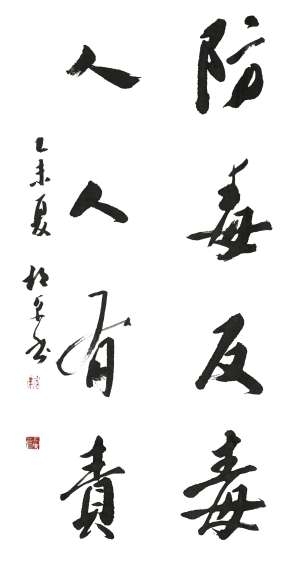 防毒反毒
人人有責
乙未夏